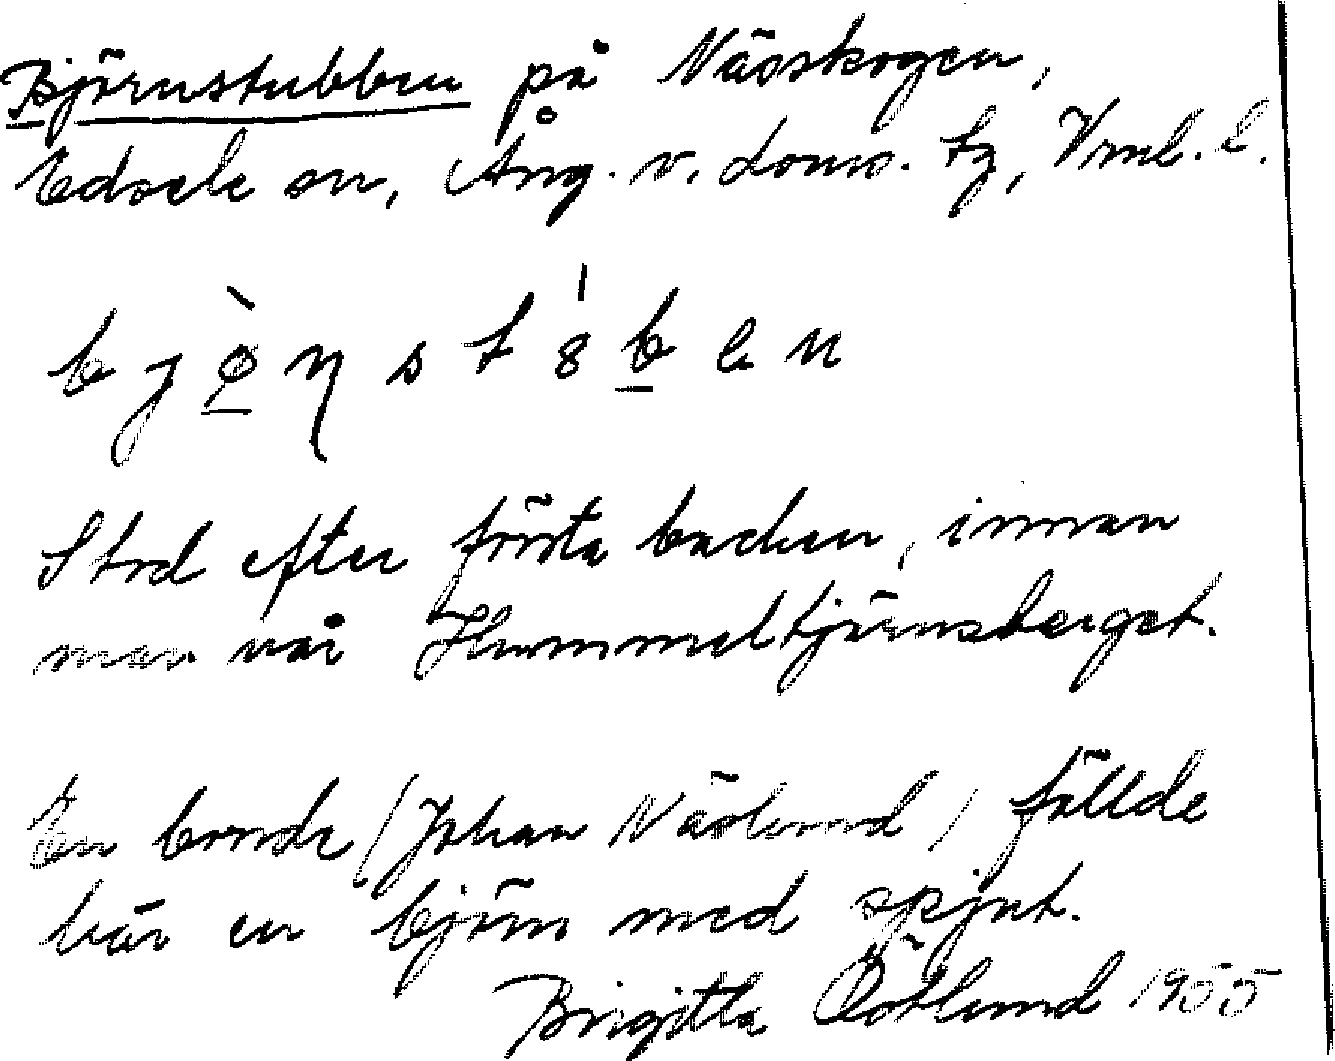 Björnstubben på Nässkogen,
Edsele sn, Ång. v. doms. tg, Vml. l.
bjö̀ṇst8́ben
Stod efter första backen, innan
man når Hummeltjärnsberget.
En bonde (Johan Näslund) fällde
här en björn med spjut.
Birgitta Östlund 1955